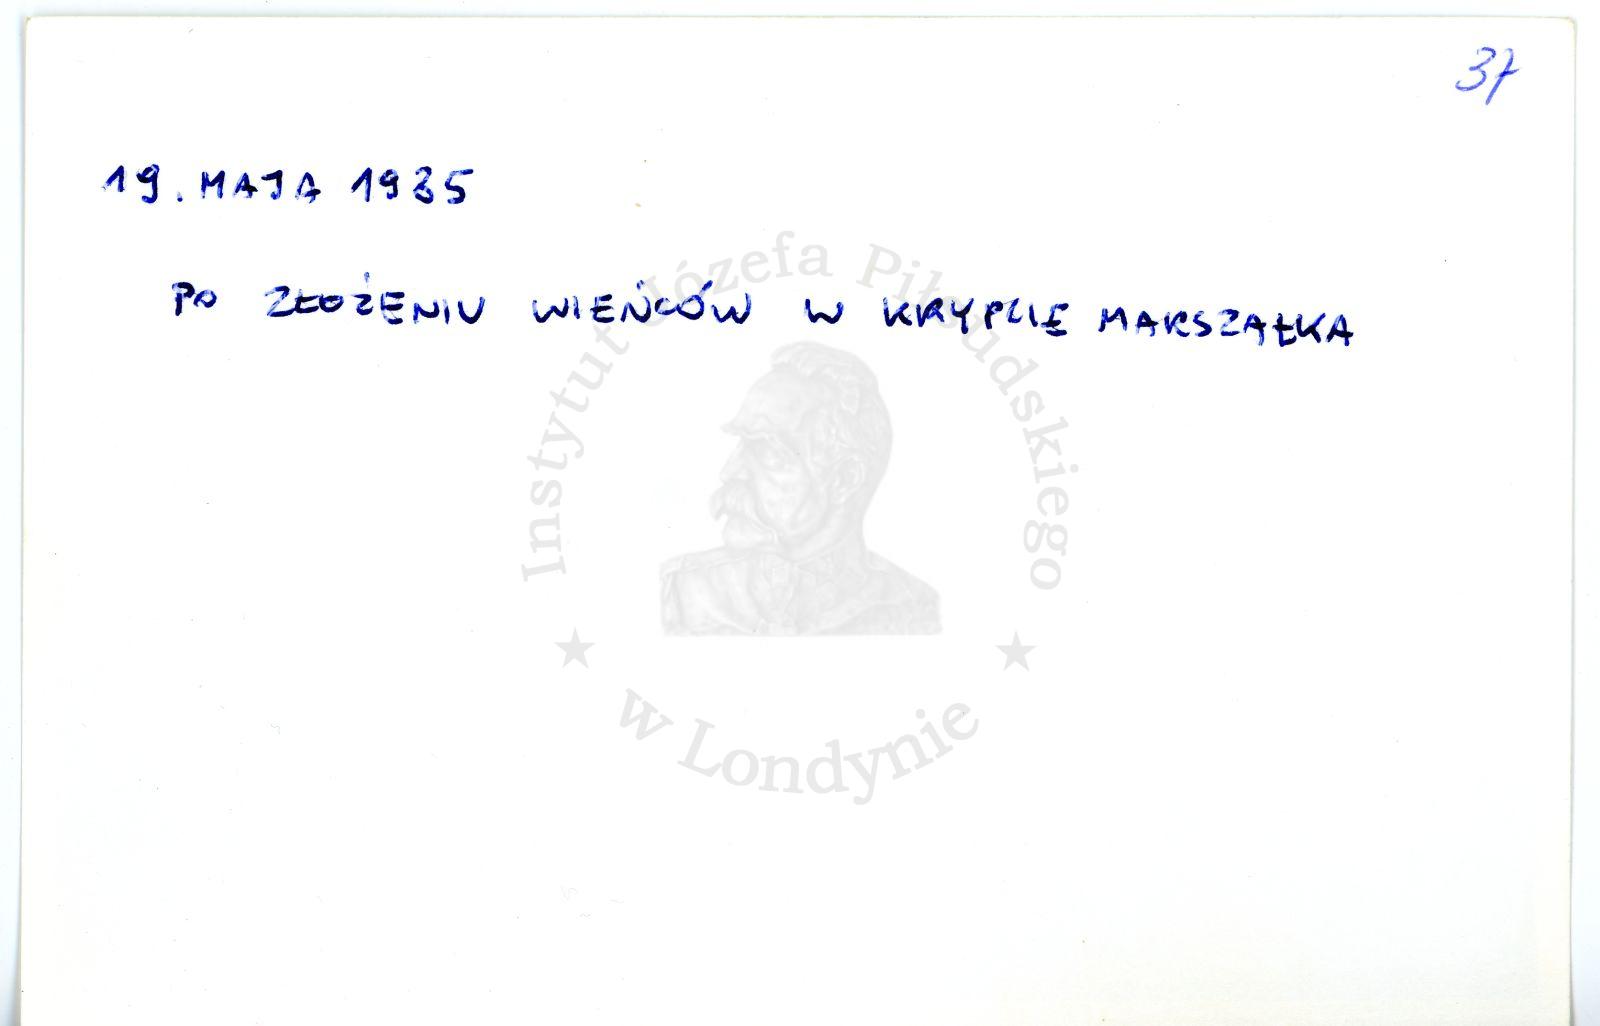 37
19. MAJA 1935
PO ZŁOŻENIU WIEŃCÓW W KRYPCIE MARSZAŁKA
Instytut Józefa Piłsudskiego
w Londynie